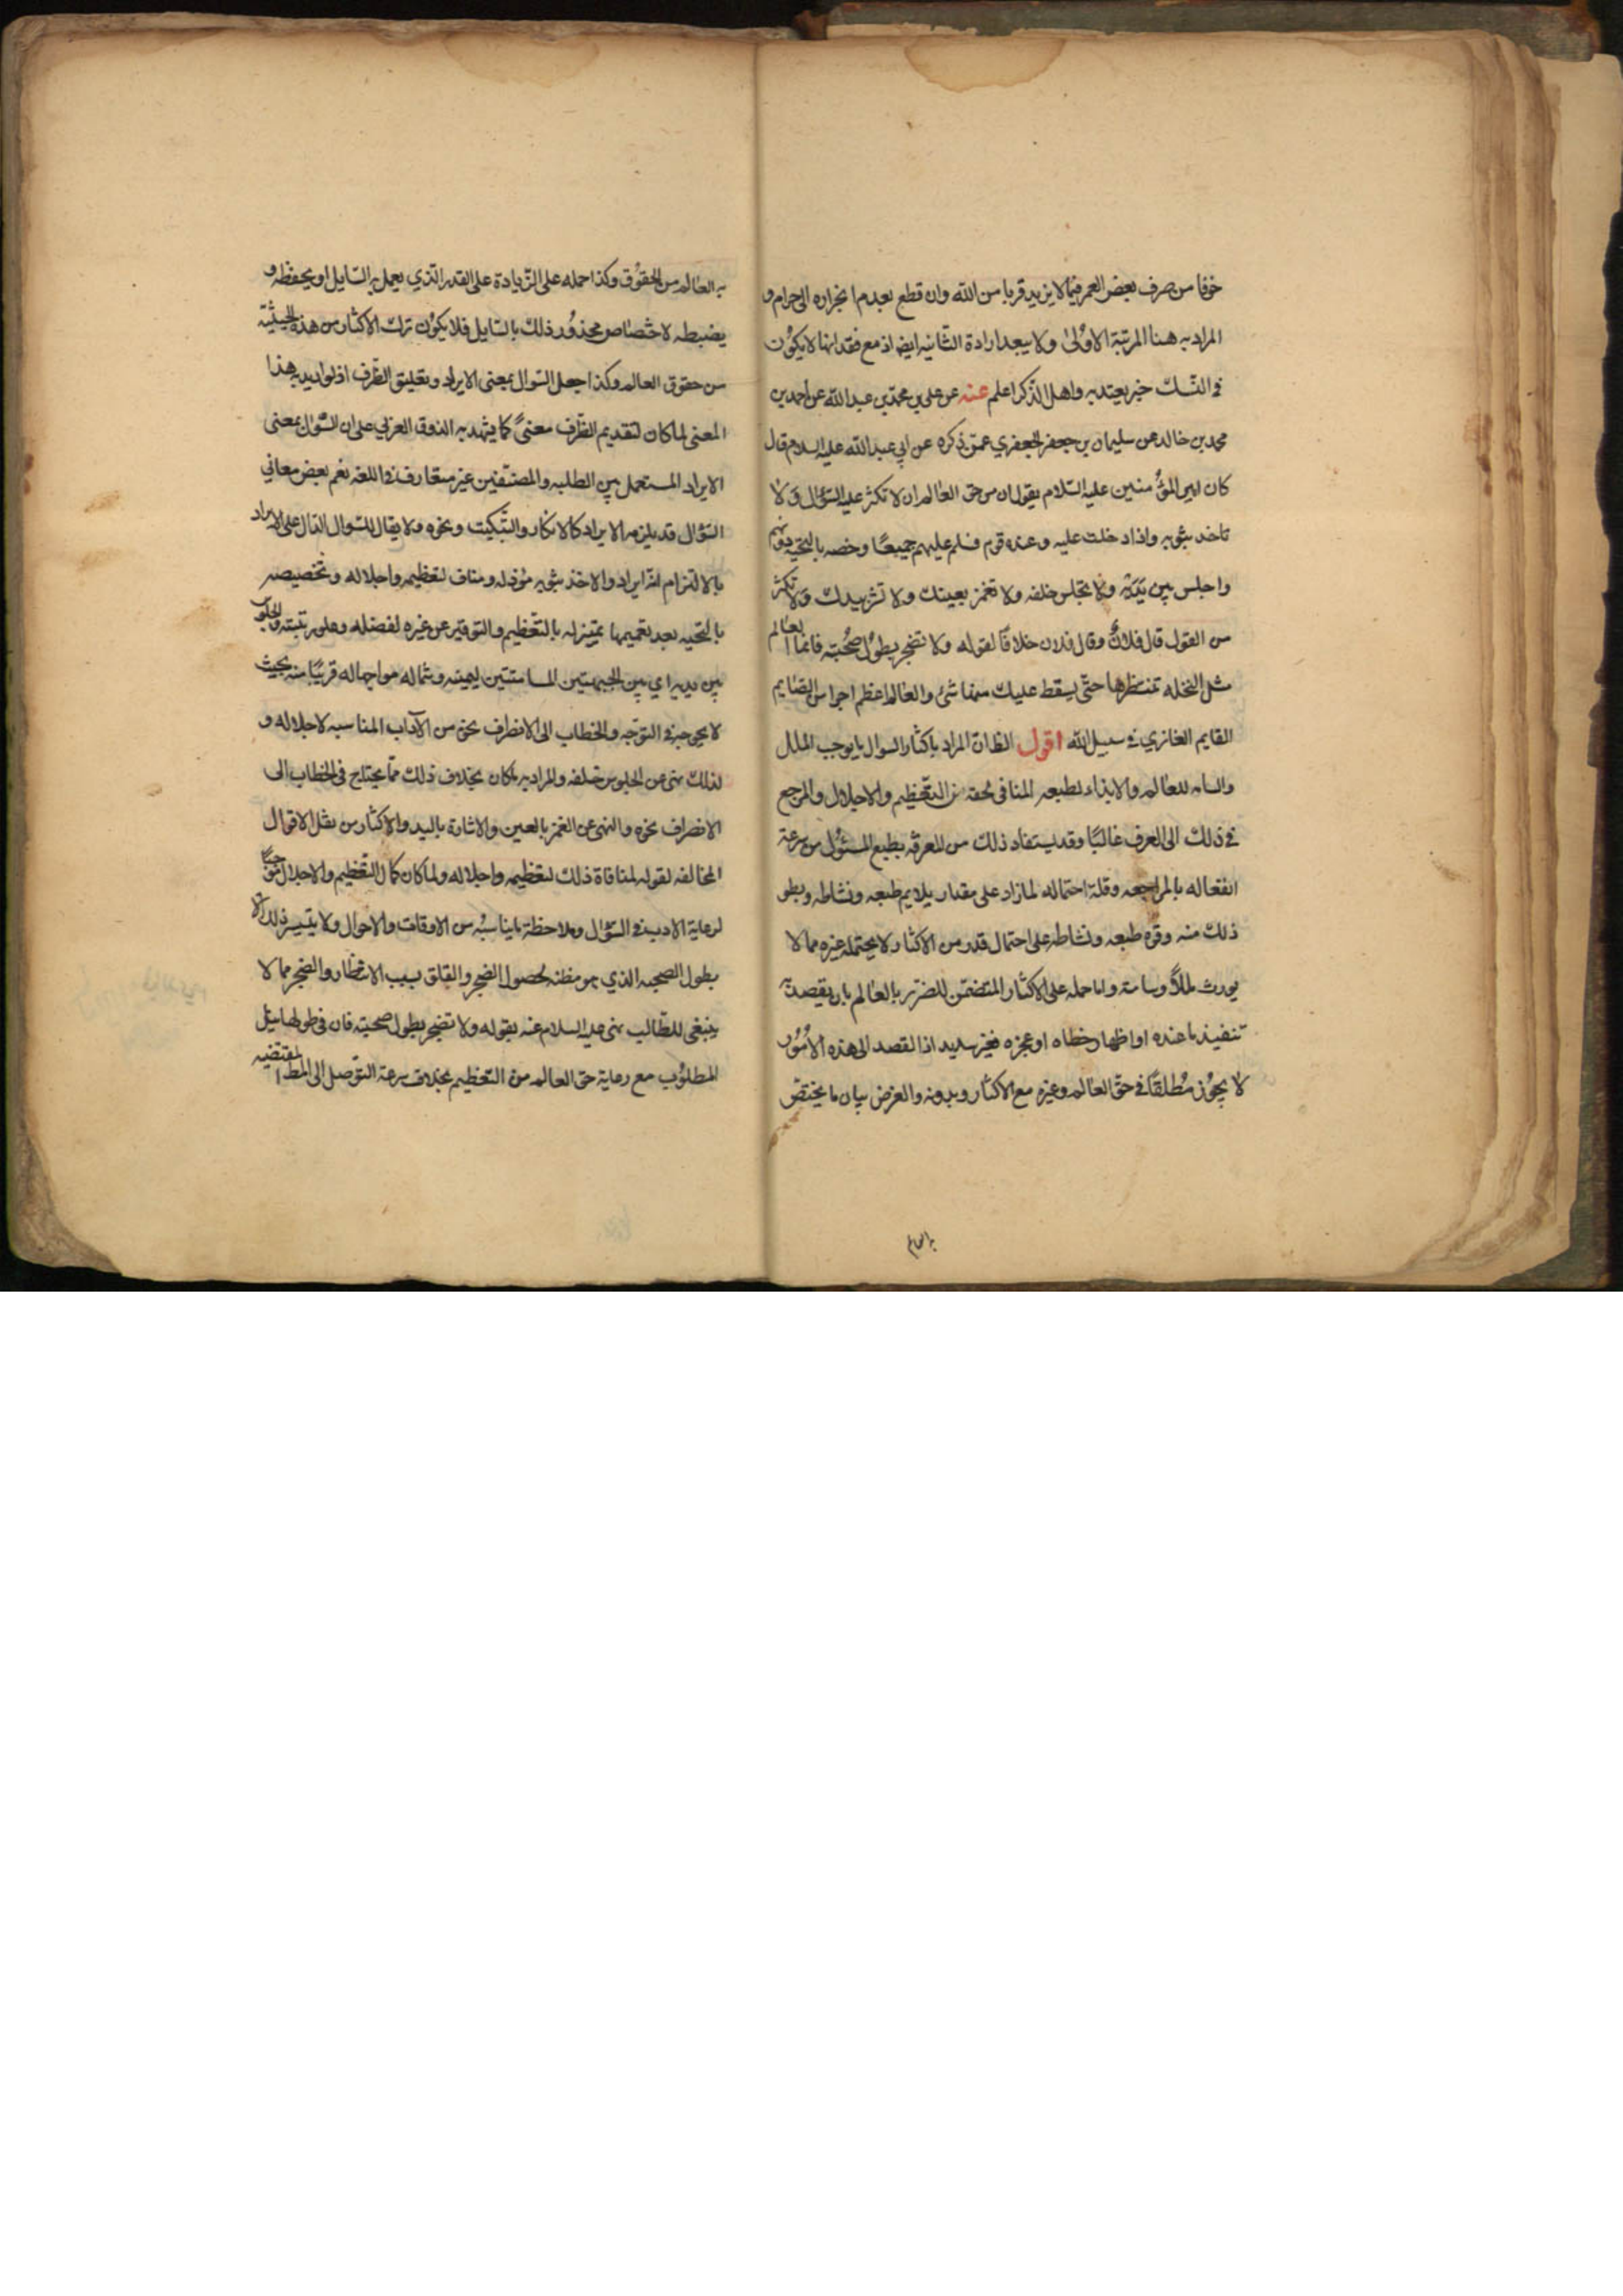 خوفا من صرف بعض العمر فيما لا يزيد قربا من الله وان قطع بعدم انجراره الى حرام و
المراد به هنا المرتبة الاولى ولا يبعد ارادة الثانيه ايضا اذ مع فقدانها لا يكون
في النسك خير يعتد به واهل الذكر اعلم عنه عن علي بن محمد بن عبد الله عن احمد بن
محمد بن خالد عن سليمان بن جعفر الجعفري عمن ذكره عن ابي عبد الله عليه السلام قال
كان امير المؤمنين عليه السلام يقول ان من حق العالم ان لا تكثر عليه السؤال ولا
تاخذ بثوبه واذا دخلت عليه وعنده قوم فسلم عليهم جميعا وخصه بالتحيه دونهم
واجلس بين يديه ولا تجلس خلفه ولا تغمز بعينك ولا تشر بيدك ولا تكثر
من القول قال فلان وقال فلان خلافا لقوله ولا تضجر بطول صحبته فانما العالم
مثل النخله تنتظرها حتى يسقط عليك منها شئ والعالم اعظم اجرا من الصايم
القايم الغازي في سبيل الله اقول الظ ان المراد باكثار السوال ما يوجب الملل
والسام للعالم والايذاء لطبعه المنافي لحقه من التعظيم والاجلال والمرجع
في ذلك الى العرف غالبا وقد يستفاد ذلك من المعرفه بطبع المسئول من سرعة
انفعاله بالمراجعه وقلة احتماله لما زاد على مقدار يلايم طبعه ونشاطه وبطو
ذلك منه وقوة طبعه ونشاطه على احتمال قدر من الاكثار لا يحتمله غيره مما لا
يورث مللا وسامة واما حمله على الاكثار المتضمن للضرر بالعالم بان يقصد
تنفيذ ما عنده او اظهار خطاه او عجزه فغير سديد اذا القصد الى هذه الامور
لا يجوز مطلقا في حق العالم وغيره مع الاكثار وبدونه والغرض بيان ما يختص
به العالم
به العالم من الحقوق وكذا حمله على الزيادة على القدر الذي يعمل به السايل او يحفظه و
يضبطه لاختصاص محذور ذلك بالسايل فلا يكون ترك الاكثار من هذه الحيثية
من حقوق العالم وكذا جعل السوال بمعنى الايراد وتعليق الظرف اذ لو اريد به هذا
المعنى لما كان لتقديم الظرف معنى كما يشهد به الذوق العربي على ان السؤال بمعنى
الايراد المستعمل بين الطلبه والمصنفين غير متعارف في اللغه نعم بعض معاني
السؤال قد يلزمه الايراد كالانكار والتبكيت ونحوه ولا يقال للسوال الدال على الايراد
بالالتزام انه ايراد والاخذ بثوبه موذ له ومناف لتعظيمه واجلاله وتخصيصه
بالتحيه بعد تعميمها تمييز له بالتعظيم والتوقير عن غيره لفضله وعلو رتبته والجلوس
بين يديه اي بين الجهتين المسامتتين ليمينه وشماله مواجها له قريبا منه بحيث
لا يحوجه في التوجه والخطاب الى الانصراف نحو من الآداب المناسبه لاجلاله و
لذلك نهى عن الجلوس خلفه والمراد به ما كان بخلاف ذلك مما يحتاج في الخطاب الى
الانصراف نحوه والنهى عن الغمز بالعين والاشارة باليد والاكثار من نقل الاقوال
المخالفه لقوله لمنافاة ذلك لتعظيمه واجلاله ولما كان كمال التعظيم والاجلال
لرعاية الادب في السؤال وملاحظة ما يناسبه من الاوقات والاحوال ولا يتيسر ذلك الا
بطول الصحبه الذي هو مظنه لحصول الضجر والقلق بسبب الانتظار والضجر مما لا
ينبغي للطالب نهى عليه السلام عنه بقوله ولا تضجر بطول صحبته فان في طولها نيل
المطلوب مع رعاية حق العالم من التعظيم بخلاف سرعة التوصل الى المط المقتضيه